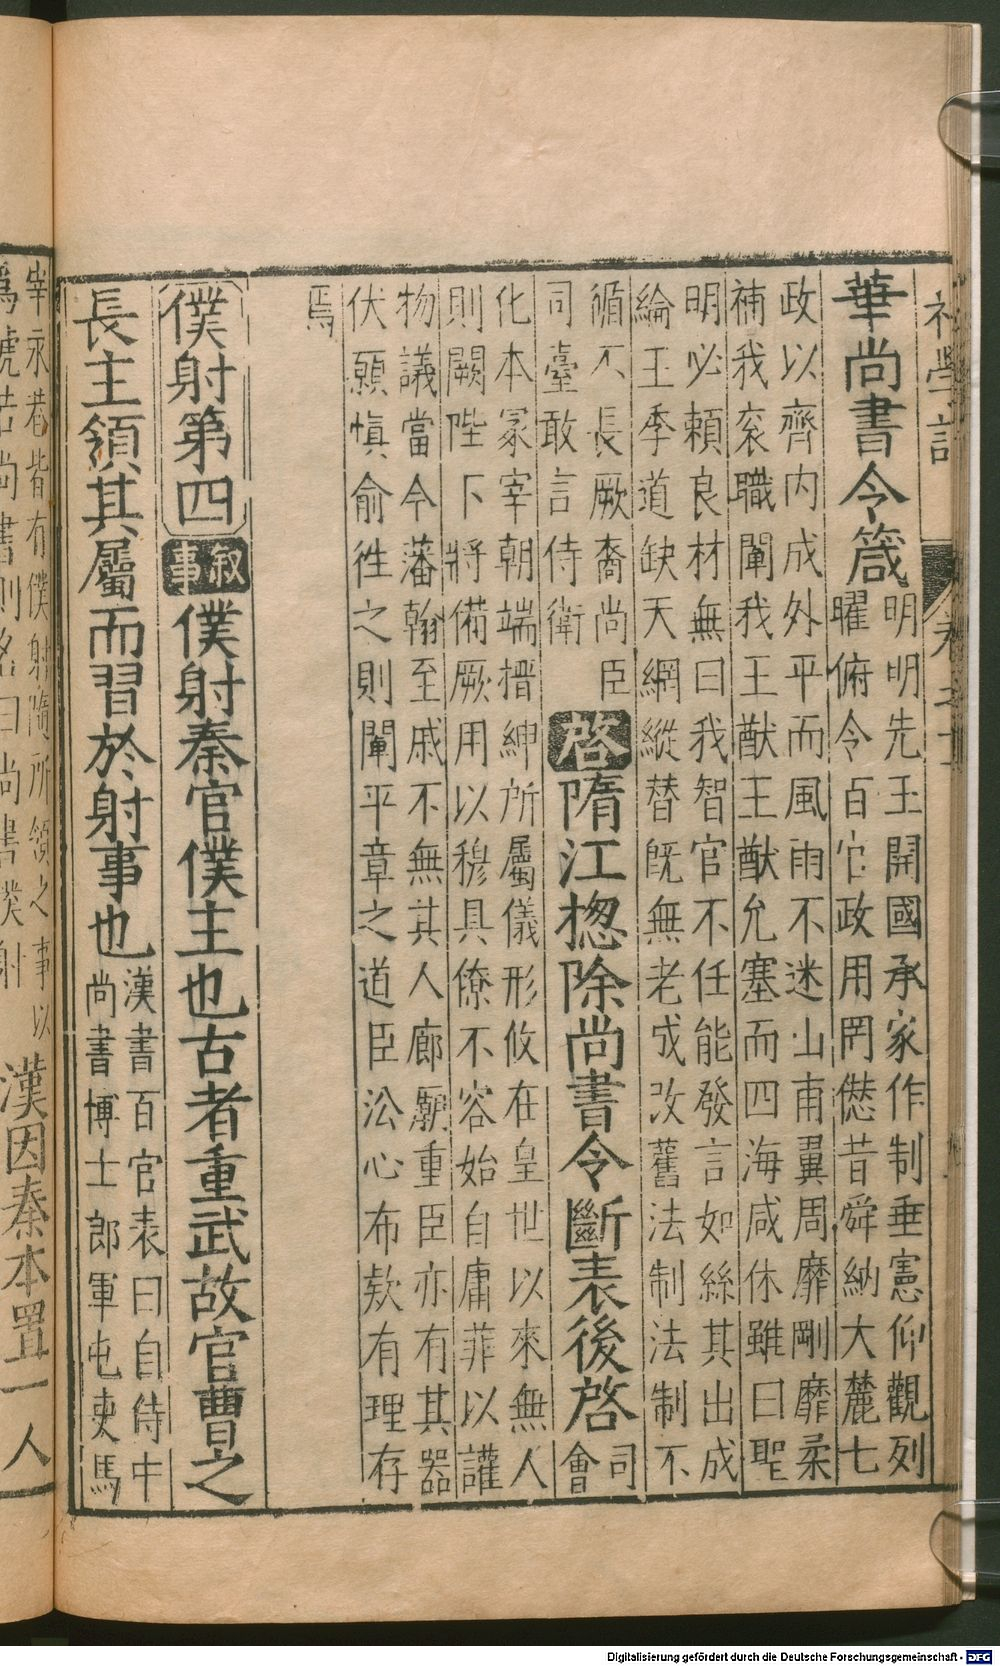 初學記 卷之十一
華尚書令箴
明明先王開國承家作制垂憲仰觀列
曜俯令百官政用罔愆昔舜納大麓七
政以齊内成外平而風雨不迷山甫翼周靡剛靡柔
補我衮職闡我王猷王猷允塞而四海咸休雖曰聖
明必頼良材無曰我智官不任能發言如絲其出成
綸王季道缺天網縱替旣無老成改舊法制法制不
循不長厥裔尚臣
司臺敢言侍衛
啓隋江揔除尚書令斷表後啓
司
會
化本冢宰朝端搢紳所屬儀形攸在皇世以來無人
則闕陛下將備厥用以穆具僚不容始自庸菲以讙
物議當今藩翰至戚不無其人廊廟重臣亦有其器
伏願愼俞徃之則闡平章之道臣心布欵有理存
焉
僕射第四 叙事 僕射秦官僕主也古者重武故官曹之
長主領其屬而習於射事也
漢書百官表曰自侍中
尚書博士郎軍屯吏馬
宰永巷皆有僕射隨所領之事以
爲號若尚書則名曰尚書僕射
漢因秦本置一人
Digitalisierung gefördert durch die Deutsche Forschungsgemeinschaft - DFG